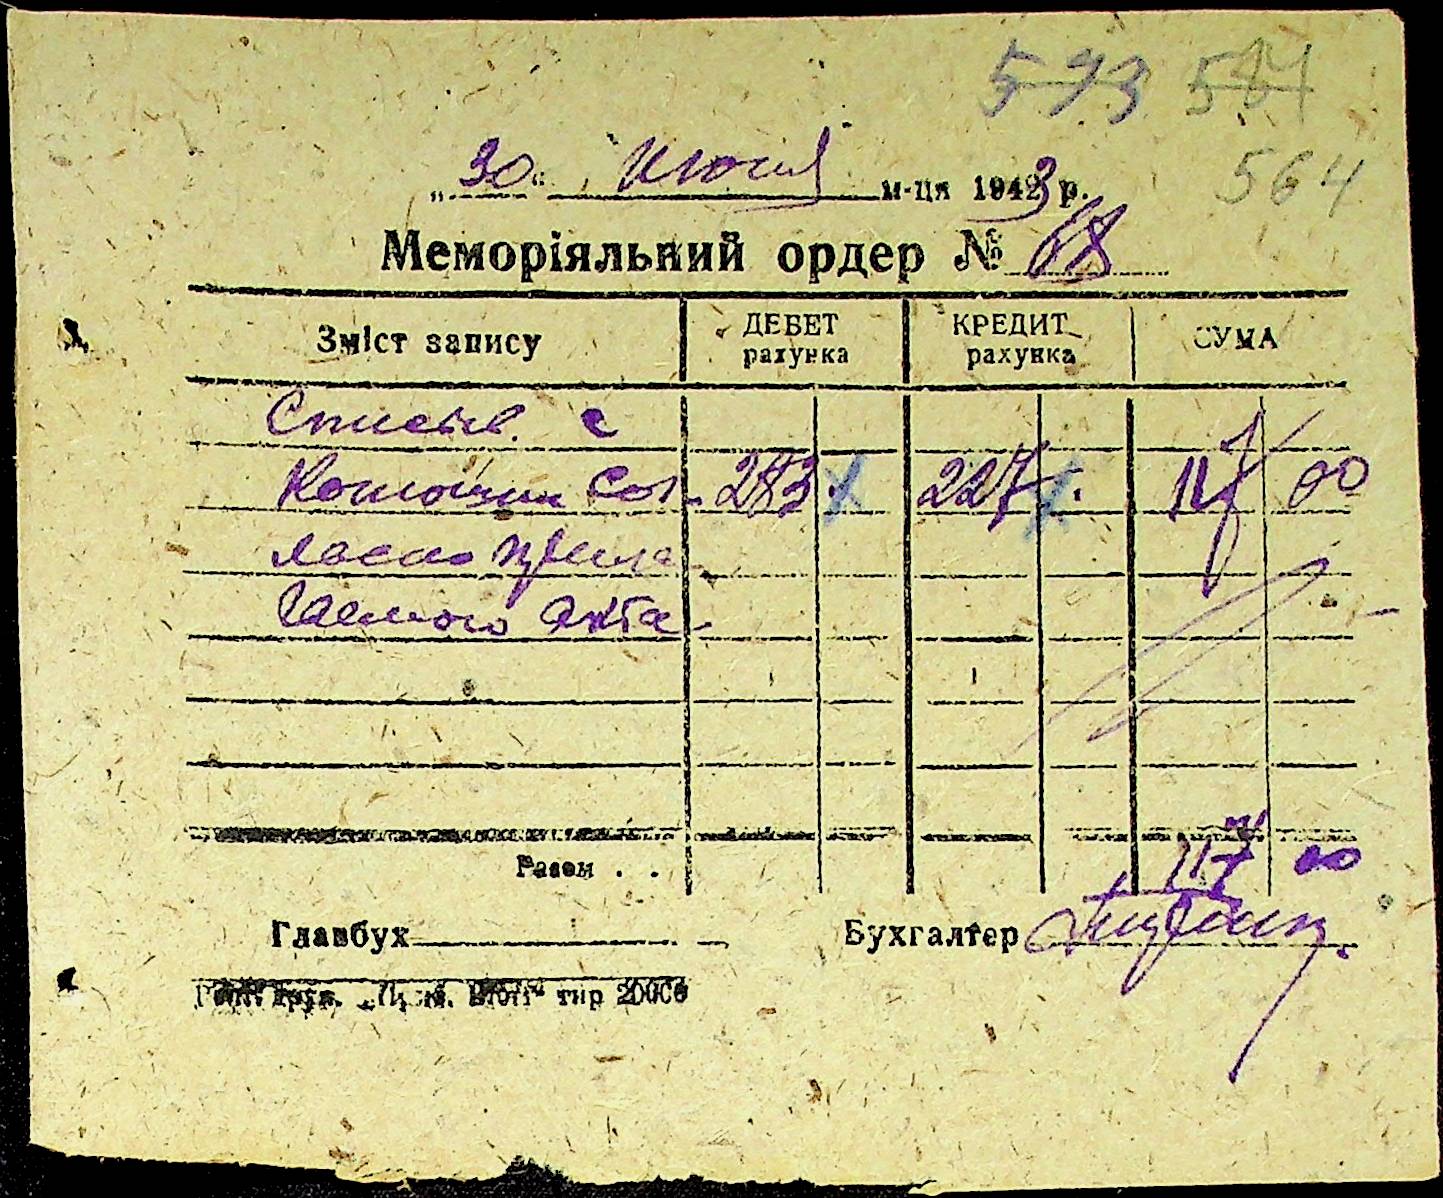 573 584
564
„30“ Июня м-ця 1943 р.
Меморіяльний ордер № 68
Зміст запису ДЕБЕТ рахунка КРЕДИТ рахунка СУМА
Списыв. с
Конюшни Сог- 283. 227. 117 00
ласно прила
гаемого акта
Разом . . 117 00
Главбух Бухгалтер
тир 20000